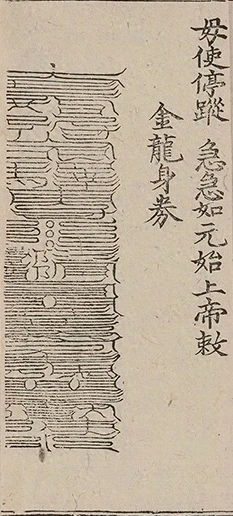 毋使停蹤 急急如元始上帝敕
金龍身券